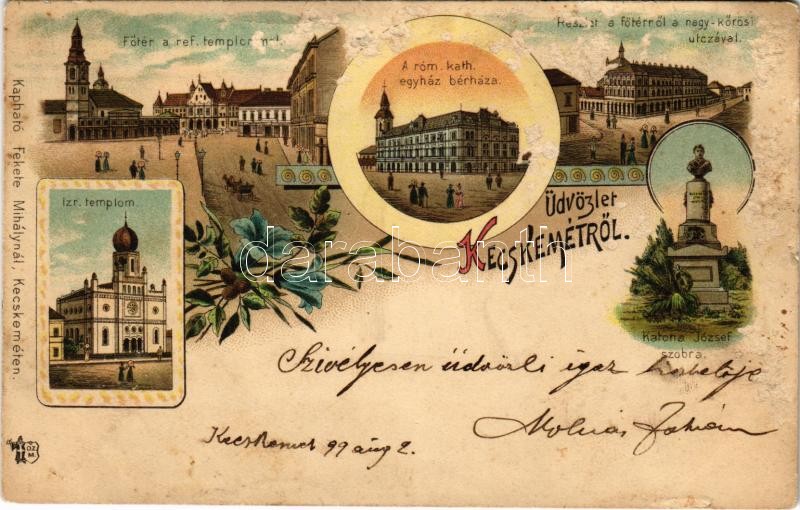 Főtér a ref. templommal.
A róm. kath.
egyház bérháza.
Részlet a főtérről a nagy-kőrösi
utczával.
Izr. templom.
Üdvözlet
KECSKEMÉTRŐL.
Katona József
szobra.
Kapható Fekete Mihálynál, Kecskeméten.
Szivélyesen üdvözli igaz
Kecskemet 99 aug 2.
darabanth